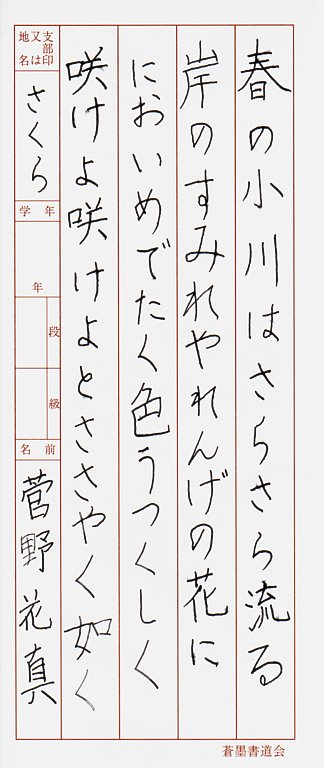 春の小川はさらさら流る
岸のすみれやれんげの花に
においめでたく色うつくしく
咲けよ咲けよとささやく如く
支部印又は地名
さくら
学年
年
段
級
名前
菅野花真
蒼墨書道会